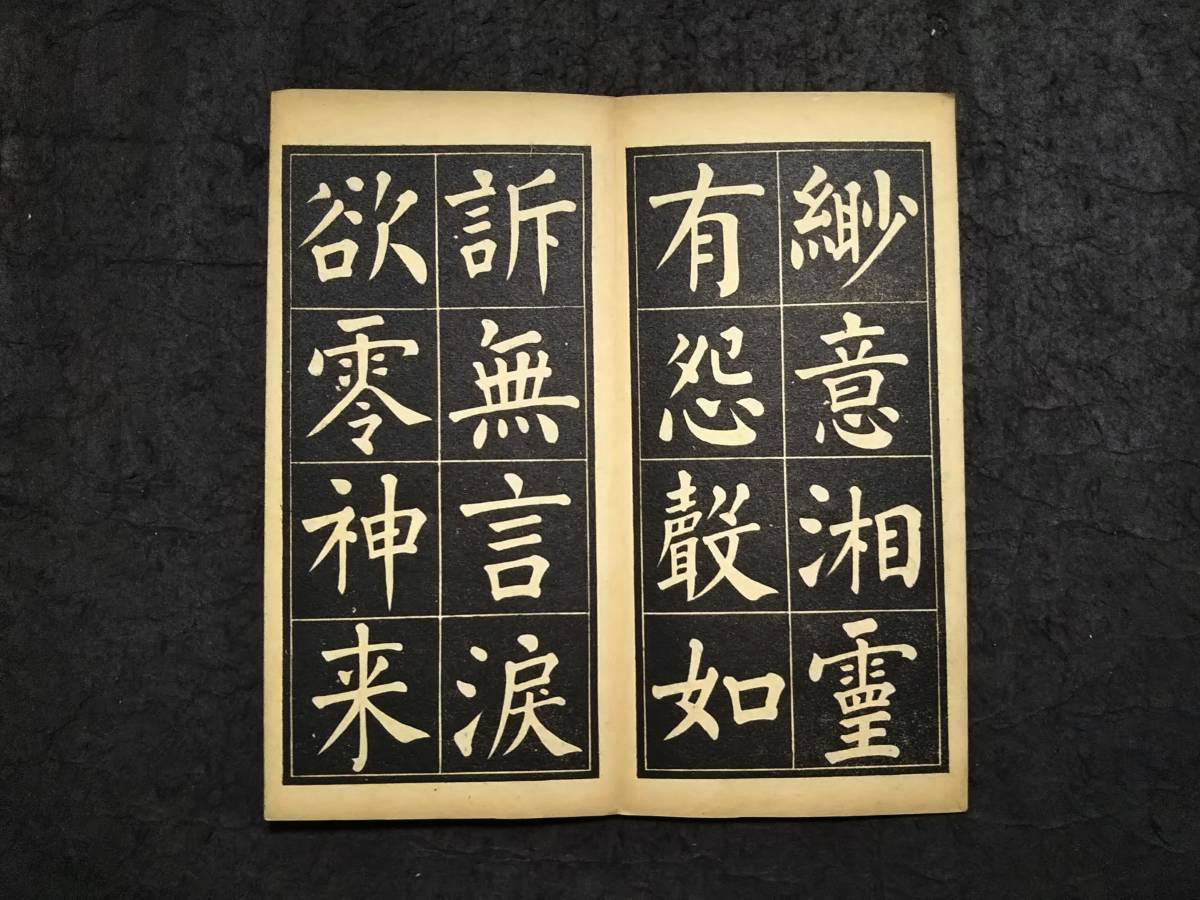 緲意湘靈
有怨聲如
訴無言淚
欲零神来